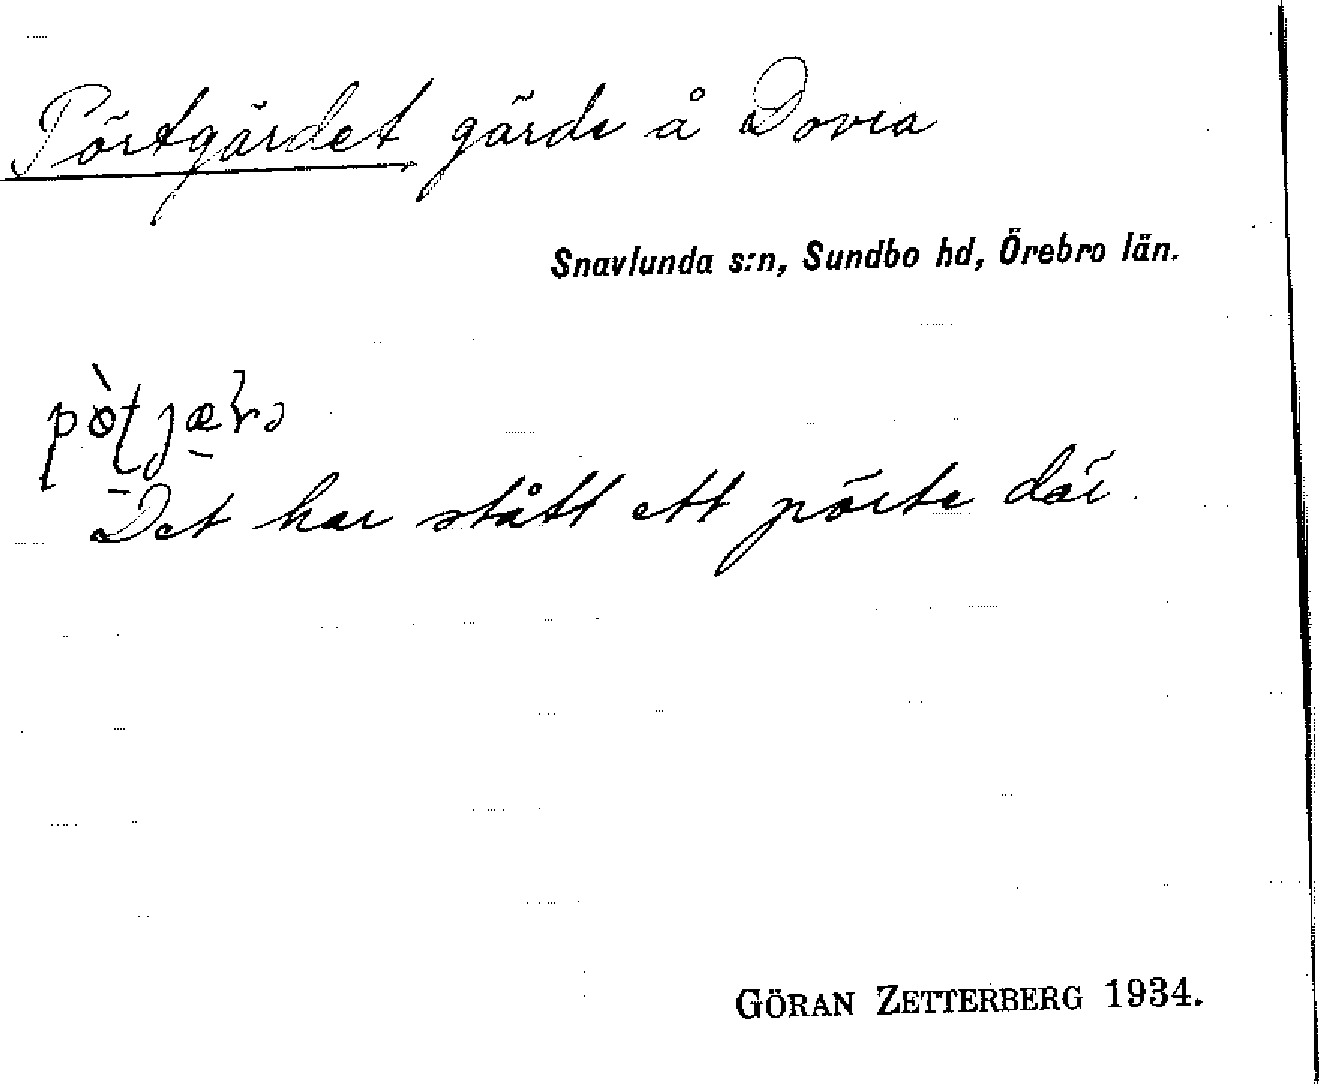 Pörtgärdet gärde å Dovra
Snavlunda s:n, Sundbo hd, Örebro län.
Det har stått ett pörte där.
GÖRAN ZETTERBERG 1934.